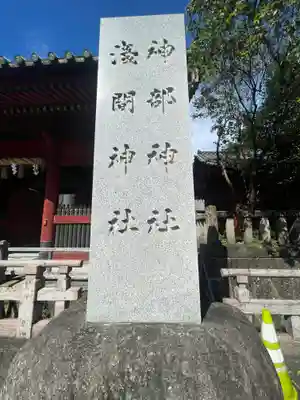 神部神社
淺間神社